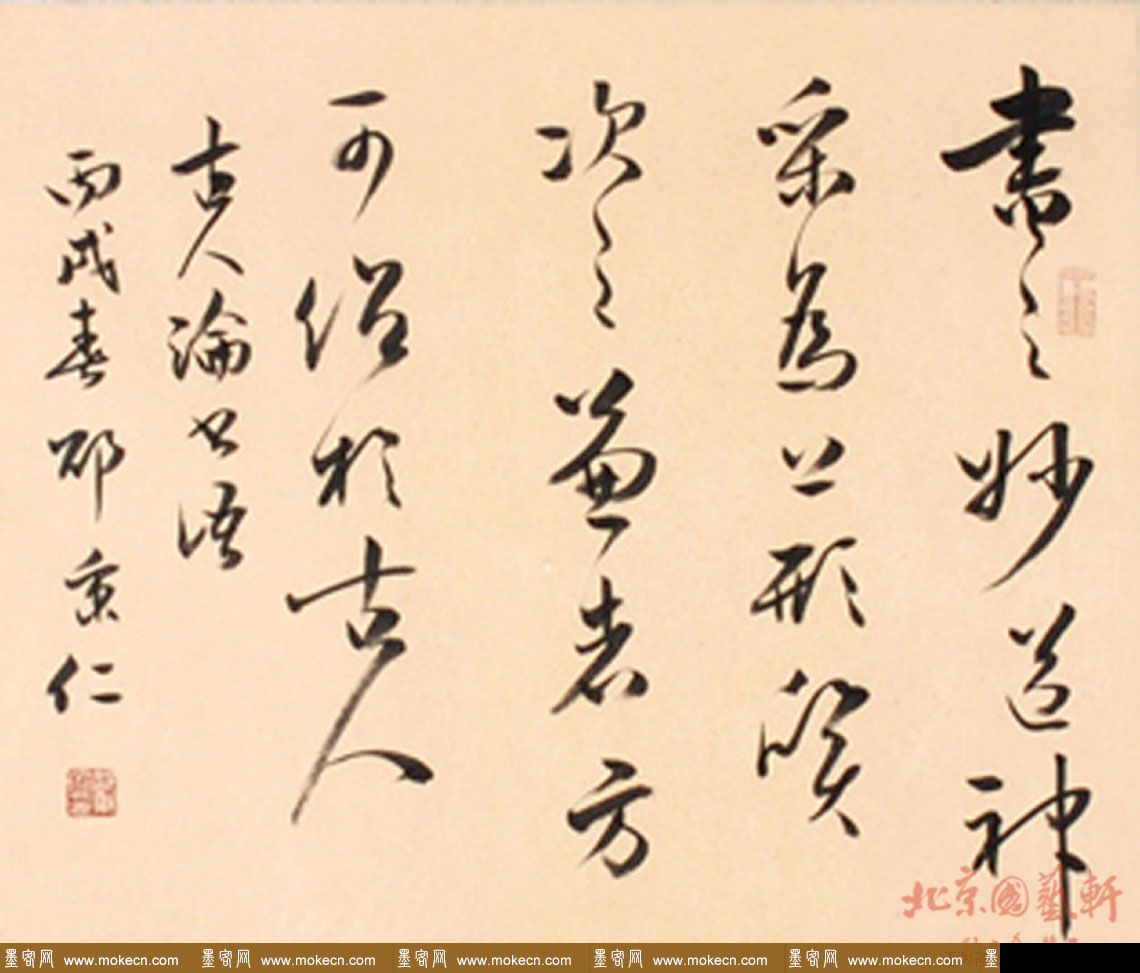 書之妙道神
采為上形質
次之兼者方
可紹於古人
古人論書語
丙戌春邵秉仁
北京國藝軒
墨客网 www.mokecn.com 墨客网 www.mokecn.com 墨客网 www.mokecn.com 墨客网 www.mokecn.com 墨客网 www.mokecn.com